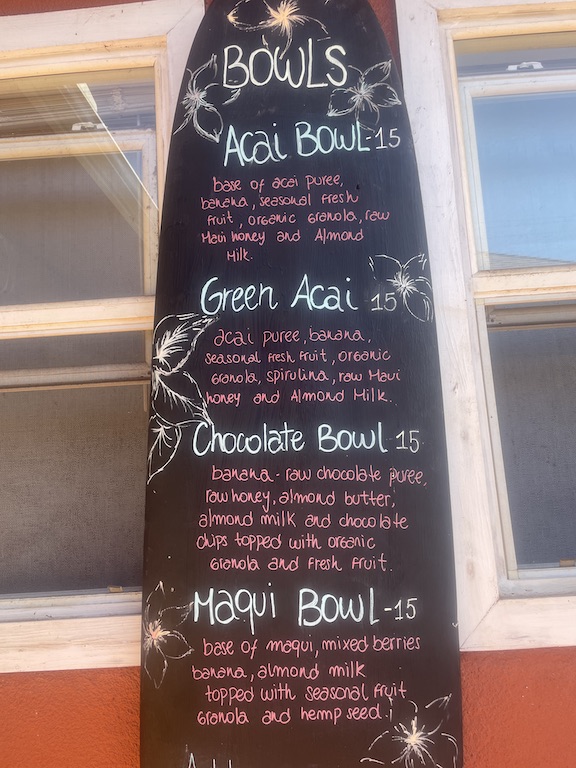 BOWLS
Acai BOWL-15
base of acai puree,
banana, seasonal fresh
fruit, organic granola, raw
Maui honey and Almond
Milk.
Green Acai 15
acai puree, banana,
seasonal fresh fruit, organic
granola, spirulina, raw Maui
honey and Almond Milk.
Chocolate Bowl 15
banana - raw chocolate puree,
raw honey, almond butter,
almond milk and chocolate
chips topped with organic
granola and fresh fruit.
Maqui BOWL-15
base of maqui, mixed berries
banana, almond milk
topped with seasonal fruit
granola and hemp seed!